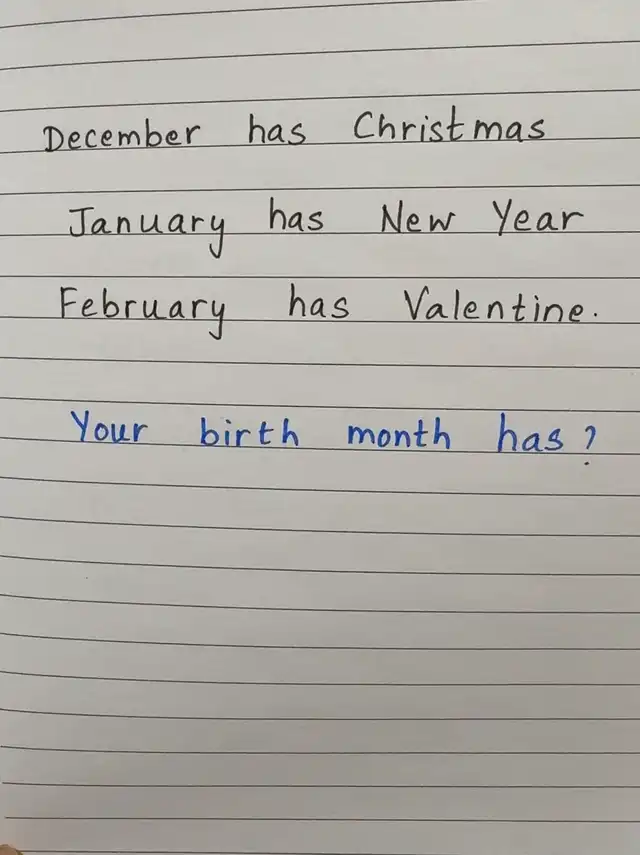 December has Christmas
January has New Year
February has Valentine.
Your birth month has?